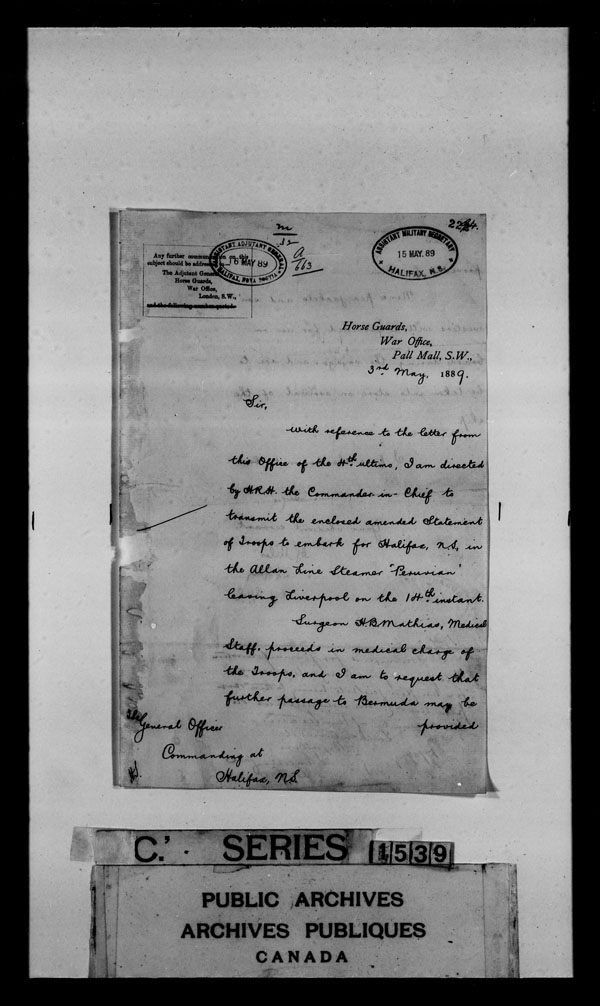 224.
m
12
A
663
Any further communication on this
subject should be addressed to
The Adjutant General,
Horse Guards,
War Office,
London, S.W.,
and the following number quoted.
ASSISTANT ADJUTANT GENERAL
16 MAY 89
HALIFAX, NOVA SCOTIA
ASSISTANT MILITARY SECRETARY
15 MAY. 89
HALIFAX, N.S.
Horse Guards,
War Office,
Pall Mall, S.W.,
3rd May, 1889.
Sir,
With reference to the letter from
this Office of the 4th ultimo, I am directed
by H.R.H. the Commander-in-Chief to
transmit the enclosed amended Statement
of Troops to embark for Halifax, N.S, in
the Allan Line Steamer "Peruvian"
leaving Liverpool on the 14th instant.
Surgeon H.B. Mathias, Medical
Staff, proceeds in medical charge of
the Troops, and I am to request that
further passage to Bermuda may be
provided
The General Officer
Commanding at
Halifax, N.S
C. SERIES 1539
PUBLIC ARCHIVES
ARCHIVES PUBLIQUES
CANADA